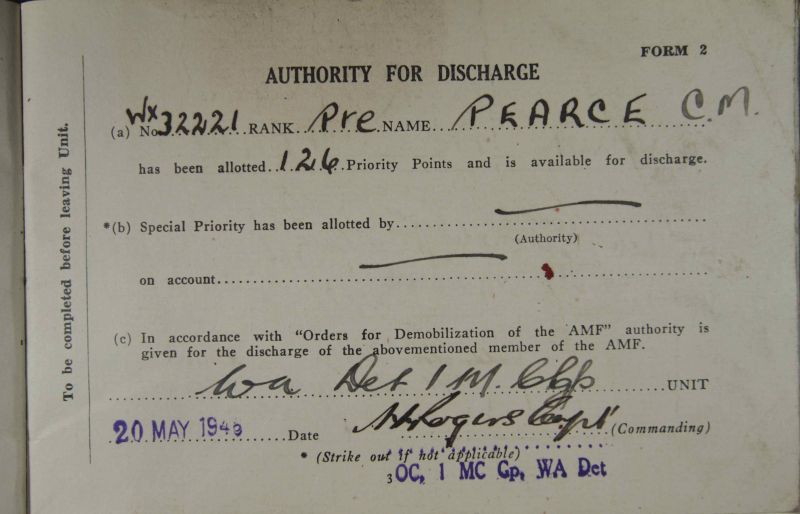 FORM 2
AUTHORITY FOR DISCHARGE
(a) No WX32221 RANK Pte NAME PEARCE C.M.
has been allotted 126 Priority Points and is available for discharge.
*(b) Special Priority has been allotted by
(Authority)
on account
(c) In accordance with "Orders for Demobilization of the AMF" authority is
given for the discharge of the abovementioned member of the AMF.
WA Det 1 M. C Gp UNIT
20 MAY 194 Date Rogers Capt (Commanding)
* (Strike out if not applicable)
OC, 1 MC Gp, WA Det
To be completed before leaving Unit.